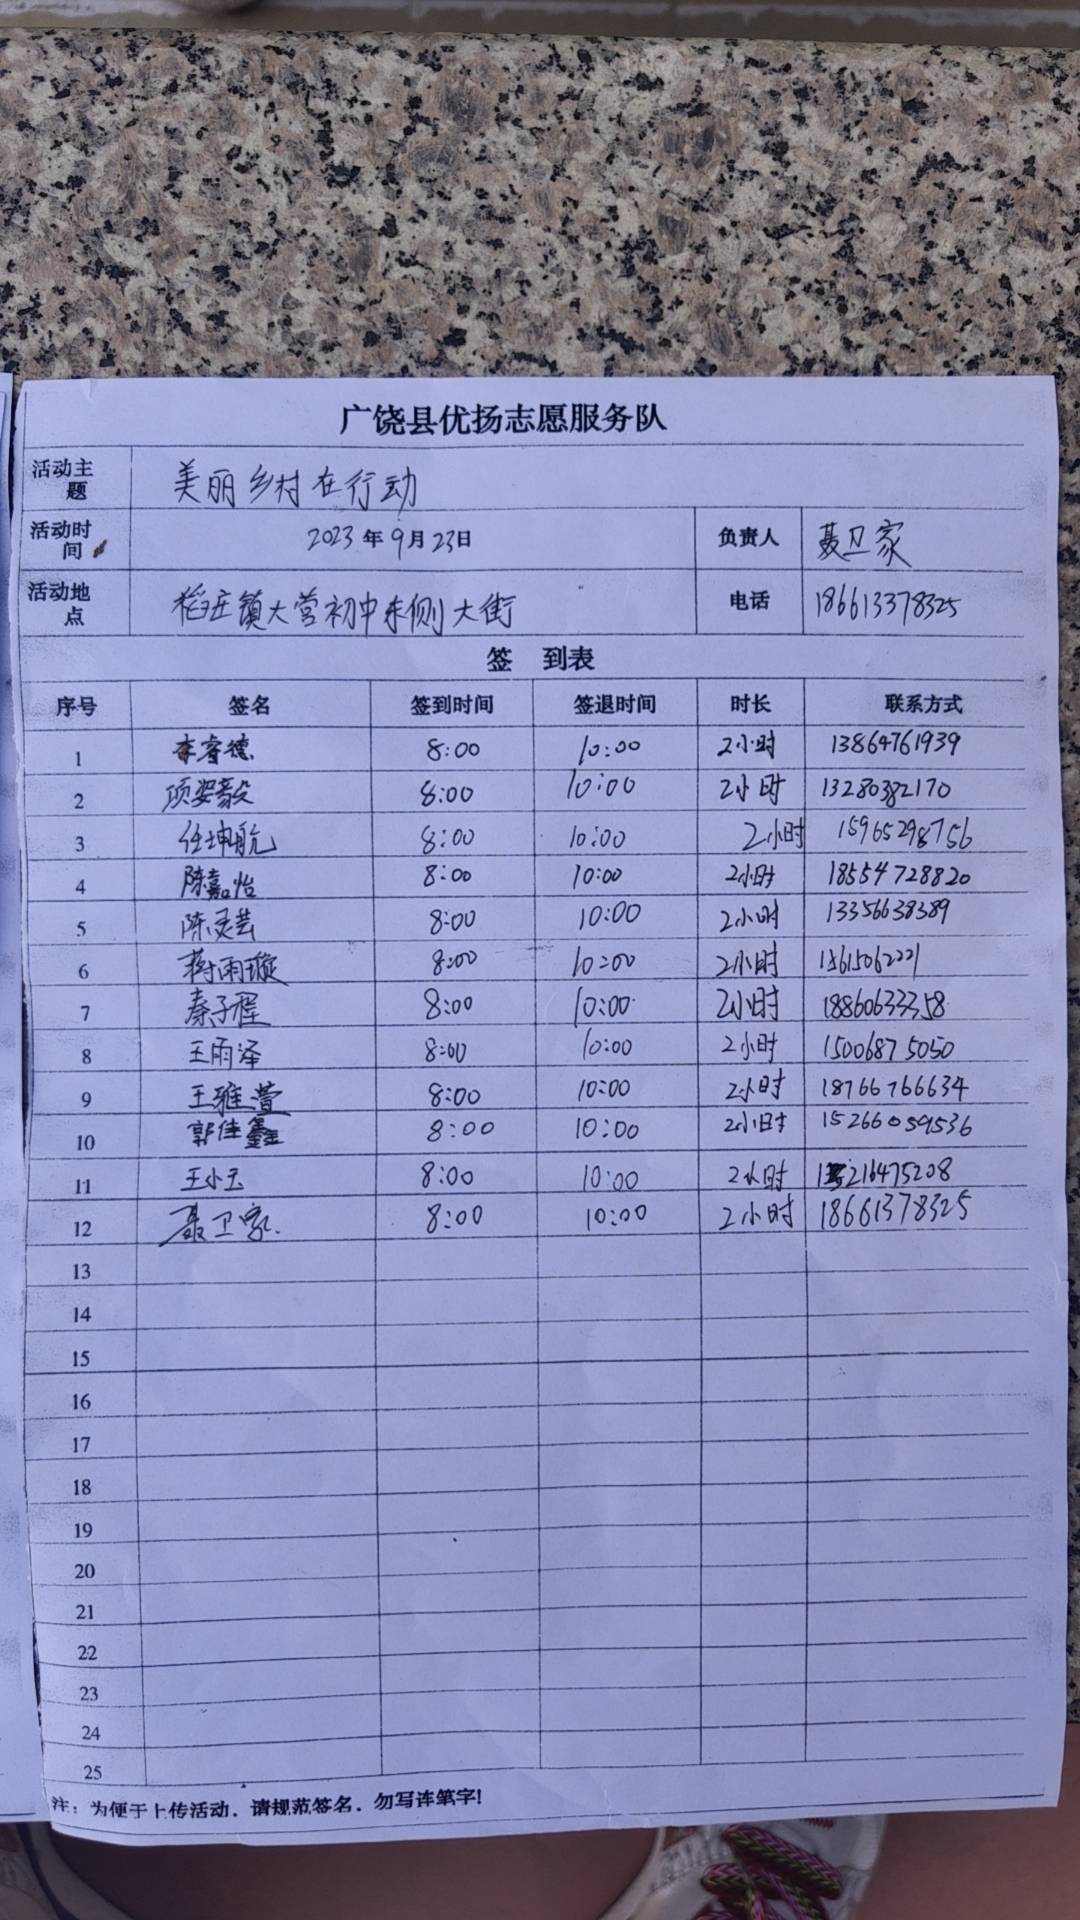 广饶县优扬志愿服务队
活动主题 美丽乡村在行动
活动时间 2023年9月23日 负责人 聂卫家
活动地点 稻庄镇大营初中东侧大街 电话 186613378325
签 到表
序号 签名 签到时间 签退时间 时长 联系方式
1 李睿德 8:00 10:00 2小时 13864761939
2 项姿毅 8:00 10:00 2小时 13280382170
3 任坤航 8:00 10:00 2小时 15965298756
4 陈嘉怡 8:00 10:00 2小时 18554728820
5 陈灵芸 8:00 10:00 2小时 13356638389
6 蒋雨璇 8:00 10:00 2小时
7 秦子程 8:00 10:00 2小时 18860633358
8 王雨泽 8:00 10:00 2小时 15006875050
9 王雅萱 8:00 10:00 2小时 18766766634
10 郭佳鑫 8:00 10:00 2小时 15266059536
11 王小玉 8:00 10:00 2小时
12 聂卫家 8:00 10:00 2小时 18661378325
13
14
15
16
17
18
19
20
21
22
23
24
25
注：为便于上传活动，请规范签名，勿写连笔字!